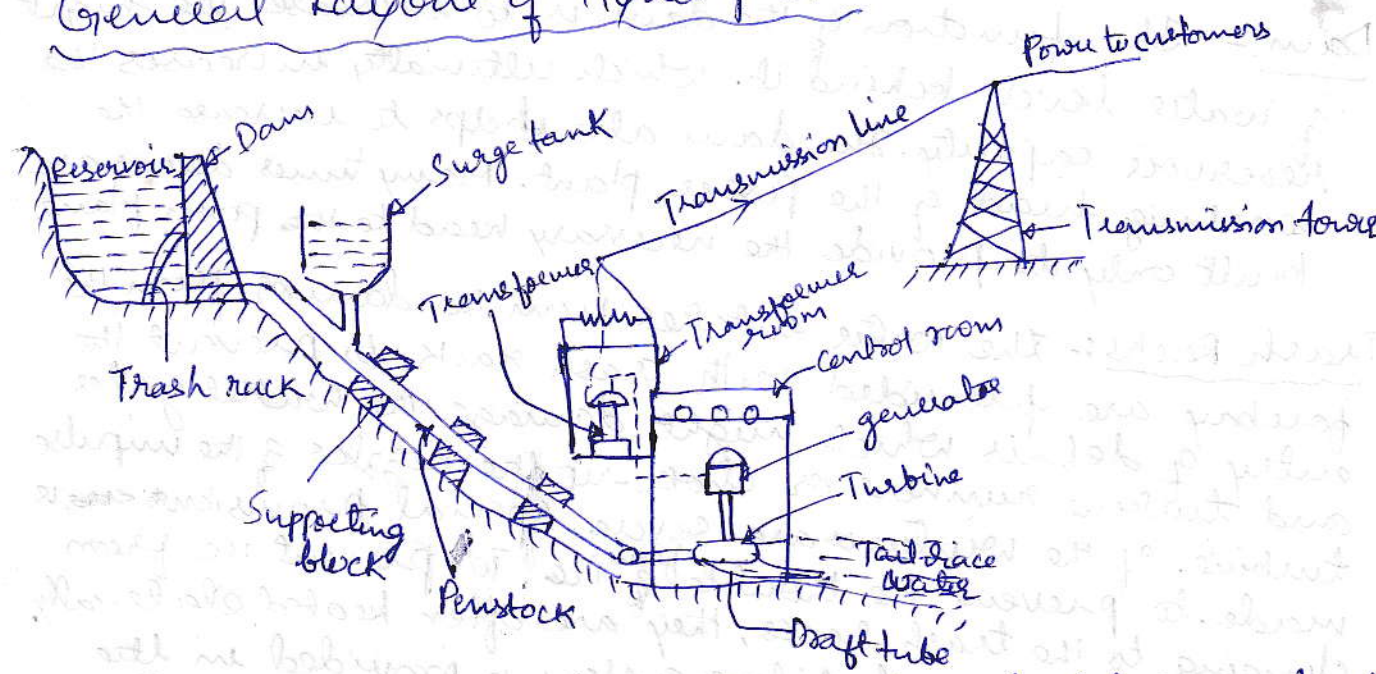 General Layout of
Power to customers
Dam
Reservoir
Surge tank
Transmission line
Transmission tower
Transformer
Transformer
room
control room
generator
Trash rack
Turbine
Supporting
block
Tail race
water
Penstock
Draft tube